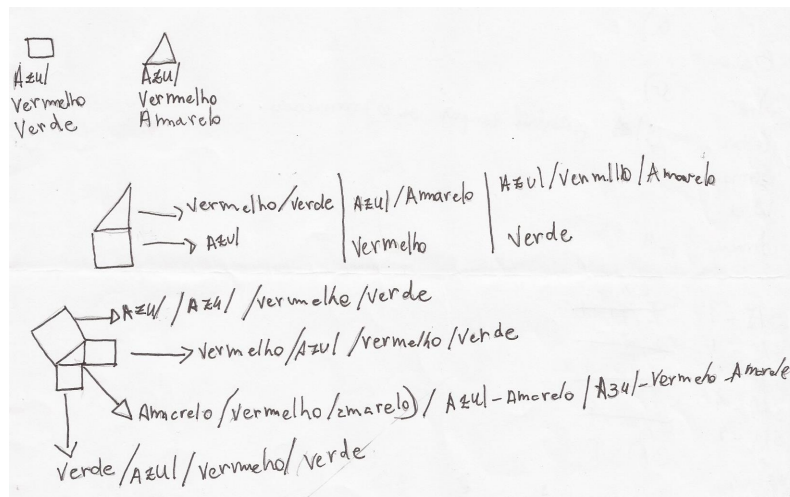 Azul
Vermelho
Verde
Azul
Vermelho
Amarelo
Vermelho/verde | Azul/Amarelo | Azul/Venmllo/Amarelo
Azul | Vermelho | Verde
Azul/Azul/vermelho/verde
vermelho/Azul/vermelho/verde
Amarelo/(vermelho/amarelo)/Azul-Amarelo/Azul-Vermeho-Amarelo
Verde/Azul/vermeho/verde